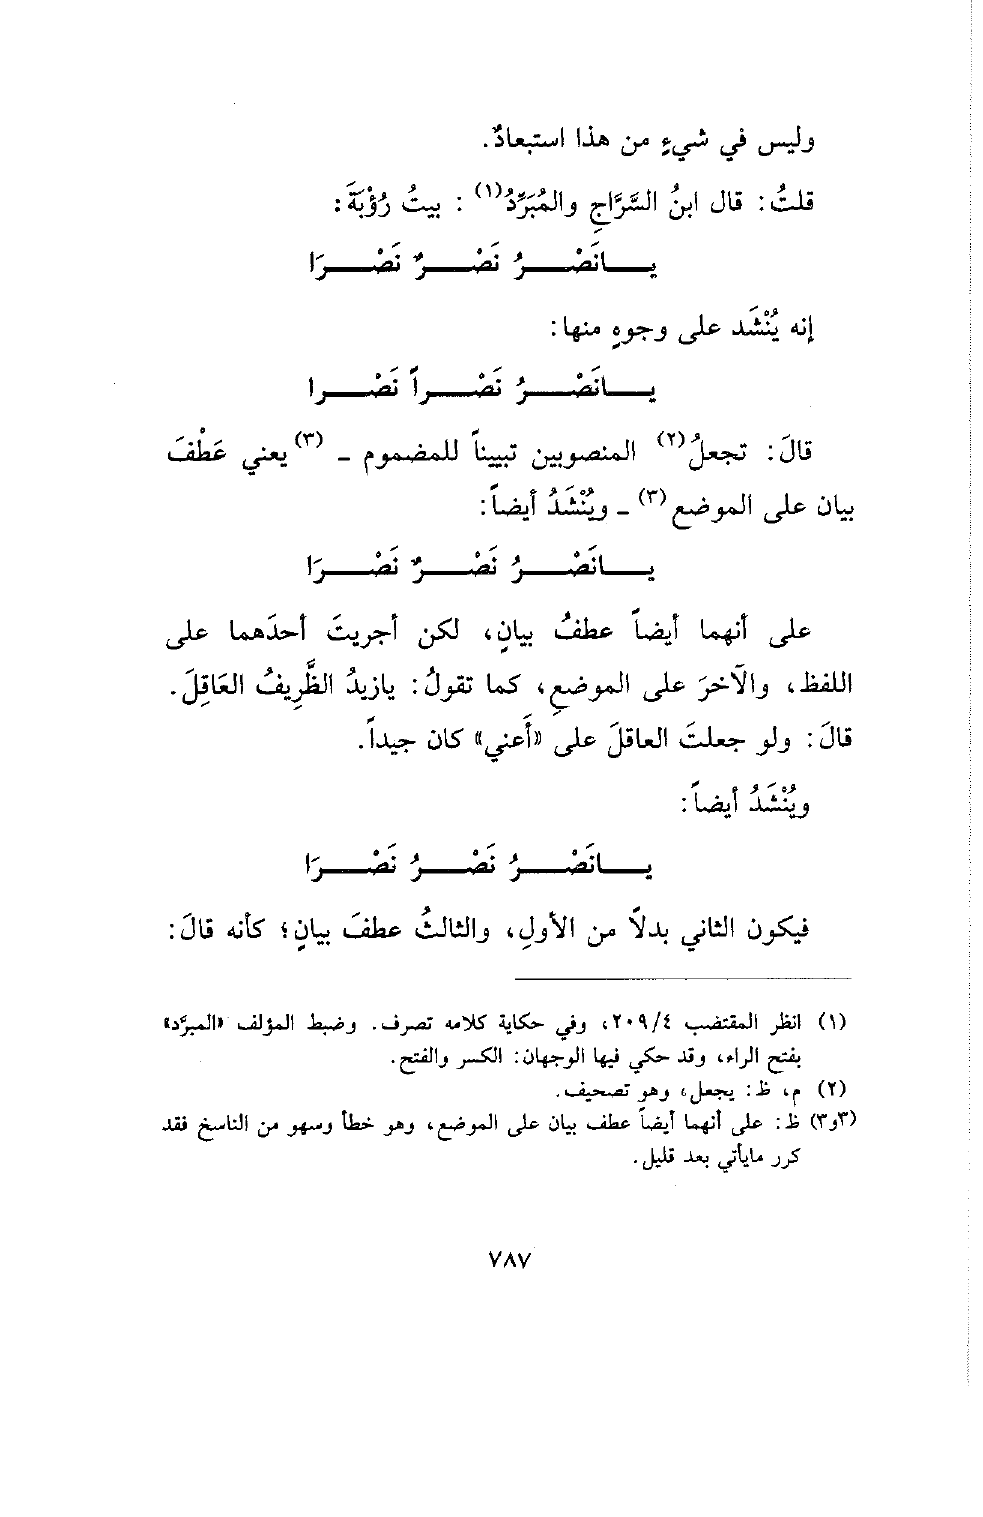 وليس في شيءٍ من هذا استبعادٌ.
قلتُ: قال ابنُ السَّرَّاجِ والمُبَرَّدُ(١) : بيتُ رُؤْبَةَ:
يـــانَصْـــرُ نَصْـــرٌ نَصْـــرَا
إنه يُنْشَد على وجوهٍ منها:
يـــانَصْـــرُ نَصْـــراً نَصْـــرا
قالَ: تجعلُ(٢) المنصوبين تبييناً للمضموم ـ (٣)يعني عَطْفَ
بيان على الموضع(٣) ـ ويُنْشَدُ أيضاً:
يـــانَصْـــرُ نَصْـــرٌ نَصْـــرَا
على أنهما أيضاً عطفُ بيانٍ، لكن أجريتَ أحدَهما على
اللفظ، والآخرَ على الموضعِ، كما تقولُ: يازيدُ الظَّرِيفُ العَاقِلَ.
قالَ: ولو جعلتَ العاقلَ على «أَعني» كان جيداً.
ويُنْشَدُ أيضاً:
يـــانَصْـــرُ نَصْـــرُ نَصْـــرَا
فيكون الثاني بدلاً من الأولِ، والثالثُ عطفَ بيانٍ؛ كأنه قالَ:
(١) انظر المقتضب ٢٠٩/٤، وفي حكاية كلامه تصرف. وضبط المؤلف «المبرَّد»
بفتح الراء، وقد حكي فيها الوجهان: الكسر والفتح.
(٢) م، ظ: يجعل، وهو تصحيف.
(٣و٣) ظ: على أنهما أيضاً عطف بيان على الموضع، وهو خطأ وسهو من الناسخ فقد
كرر مايأتي بعد قليل.
٧٨٧